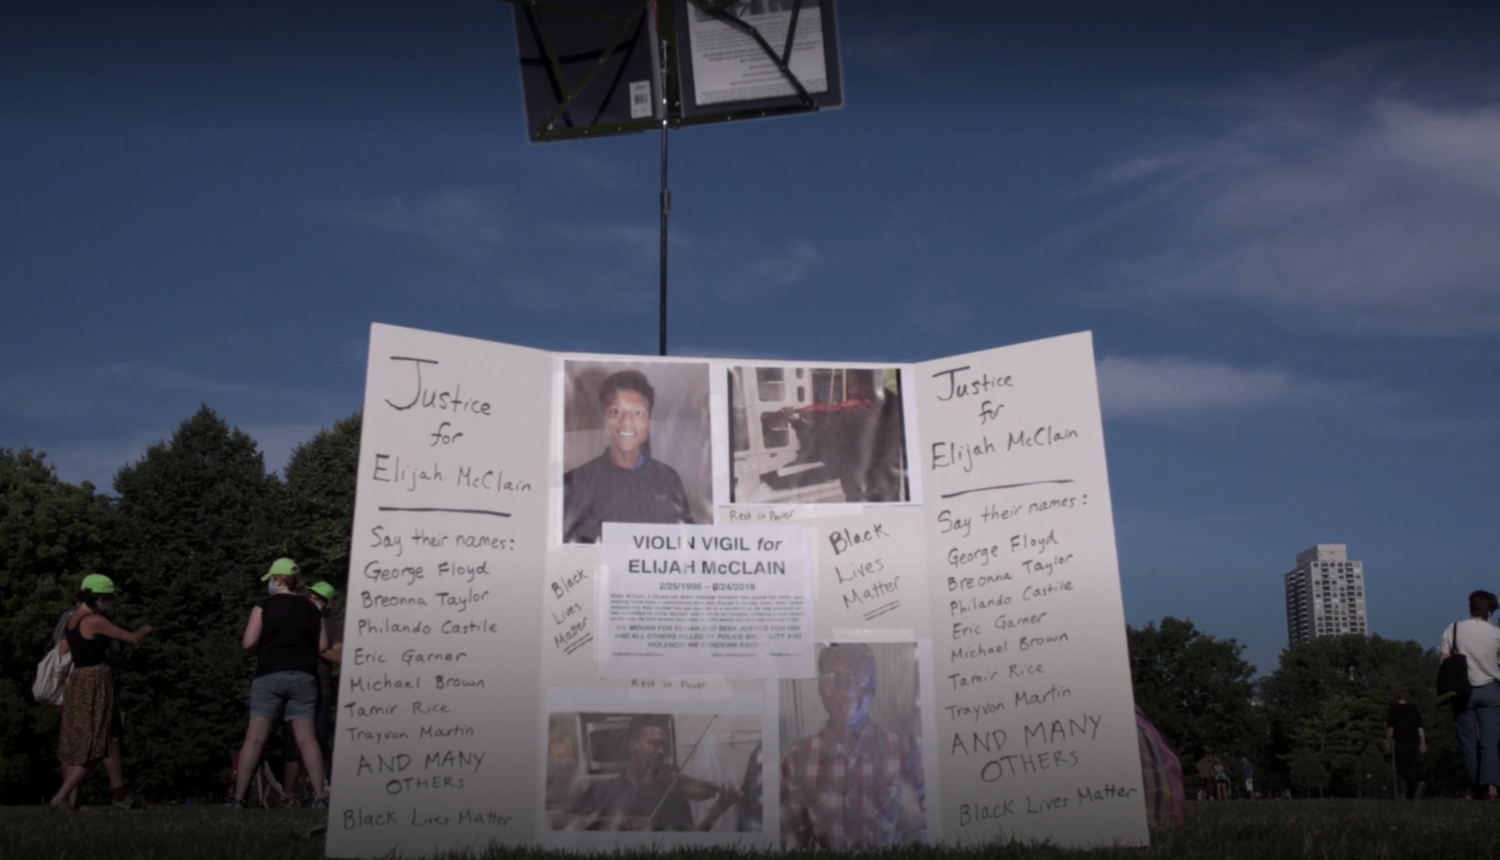 Justice
for
Elijah McClain
Say their names:
George Floyd
Breonna Taylor
Philando Castile
Eric Garner
Michael Brown
Tamir Rice
Trayvon Martin
AND MANY
OTHERS
Black Lives Matter
Rest in Power
Black
Lives
Matter
VIOLIN VIGIL for
ELIJAH McCLAIN
WE MOURN FOR ELIJAH AND SEEK JUSTICE FOR YOU
AND ALL OTHERS KILLED BY POLICE BRUTALITY AND
VIOLENCE! WE CONDEMN
Black
Lives
Matter
Rest in Power
Justice
for
Elijah McClain
Say their names:
George Floyd
Breonna Taylor
Philando Castile
Eric Garner
Michael Brown
Tamir Rice
Trayvon Martin
AND MANY
OTHERS
Black Lives Matter